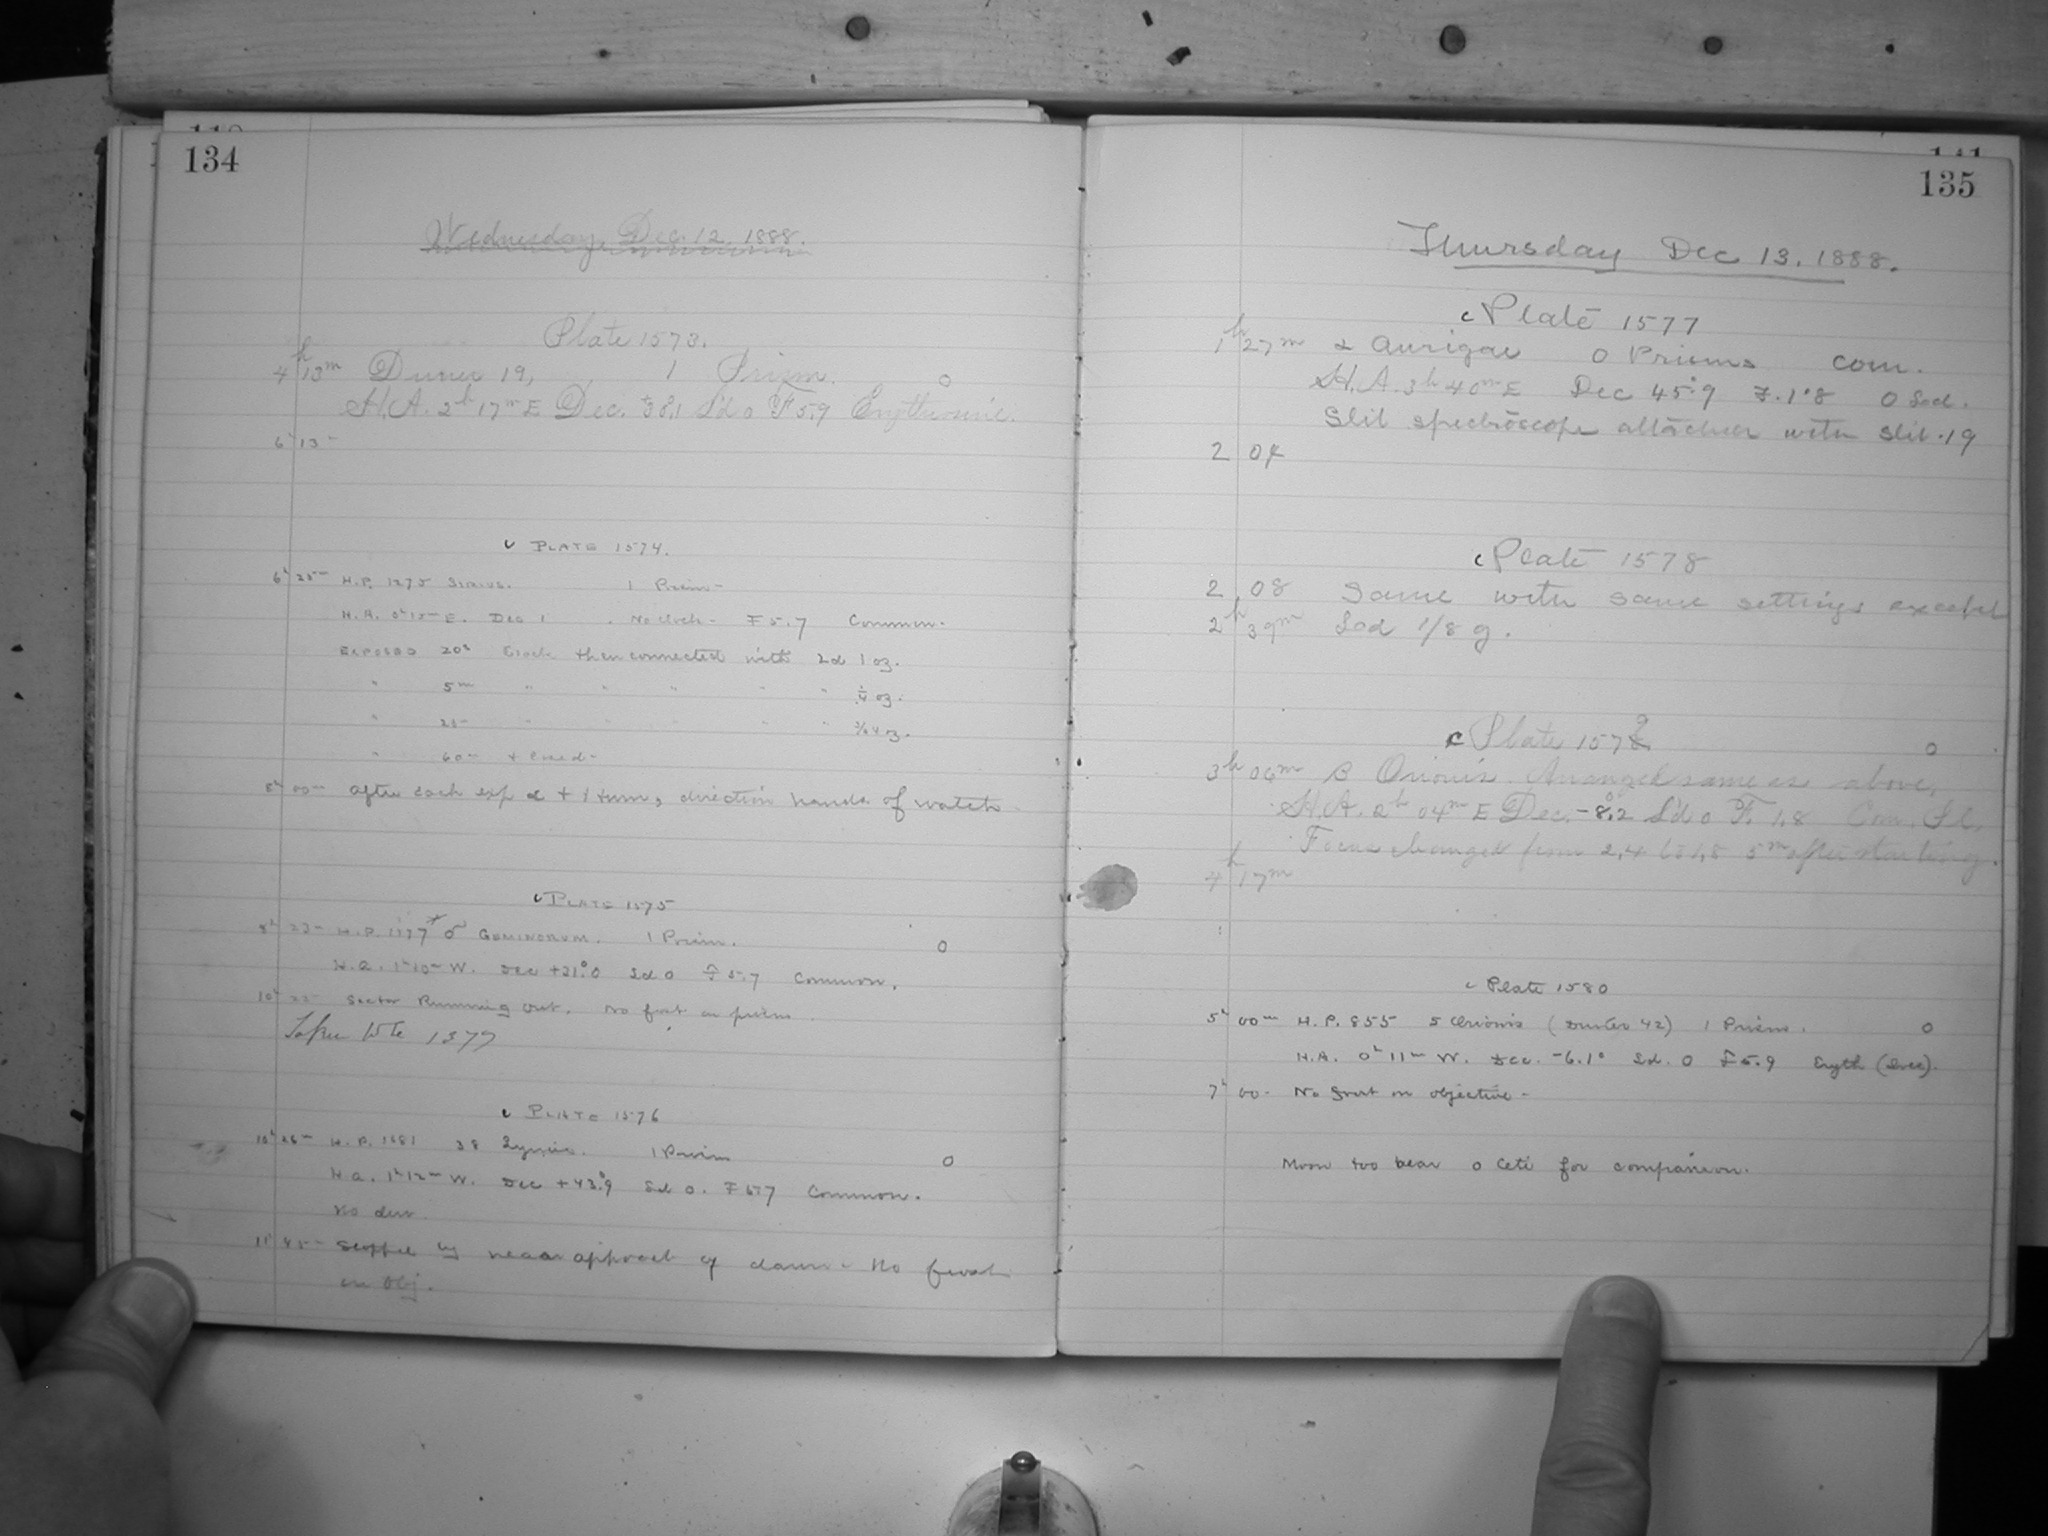 134
Wednesday, Dec. 12, 1888.
Plate 1573.
4h 13m Duner 19, 1 Prism. 0
H.A. 2h 17m E Dec. +38.1 S'd 0 F 5.9 Erythrosine.
6h 13m
c PLATE 1574.
6h 25m H.P. 1275 SIRIUS. 1 Prism
H.A. 0h 15m E. DEC No Clock - F 5.7 Common.
EXPOSED 20s Clock then connected with Sd 1 oz.
" 5m " " " " " 1/4 oz.
" 20 " " oz.
" 60 + closed -
8h 00m after each exp d + 1 turn, direction hands of watch
c PLATE 1575
8h 22m H.P. 1377* σ GEMINORUM. 1 Prism. 0
H.A. 1h 10m W. Dec +21.°0 Sd 0 F 5.7 Common.
10h 22m Sector Running Out. No frost on prism.
1377
c PLATE 1576
10h 26m H.P. 1681 38 Lyncis. 1 Prism 0
H.A. 1h 12m W. Dec +43.°9 Sd 0. F 5.7 Common.
No dew
11h 45m Stopped by near approach of dawn - No frost
on Obj.
135
Thursday Dec 13. 1888.
c Plate 1577
1h 27m α Aurigae 0 Prisms com.
H.A. 3h 40m E Dec 45.°9 F. 1.8 0 Sod.
Slit spectroscope attached with slit .19
2 04
c Plate 1578
2 08 Same with same settings except
2h 39m Sod 1/8 g.
c Plate 1579 0
3h 06m β Orionis. Arranged same as above.
H.A. 2h 04m E Dec. -8.°2 S'd 0 F. 1.8 Com. Sl.
Focus changed from 2.4 to 1.8 5m after starting.
4h 17m
c Plate 1580
5h 00m H.P. 855 5 Orionis (Duner 42) 1 Prism. 0
H.A. 0h 11m W. Dec. -6.1° Sd. 0 F 5.9 Eryth
7h 00m No frost on objective -
Moon too near o Ceti for comparison.